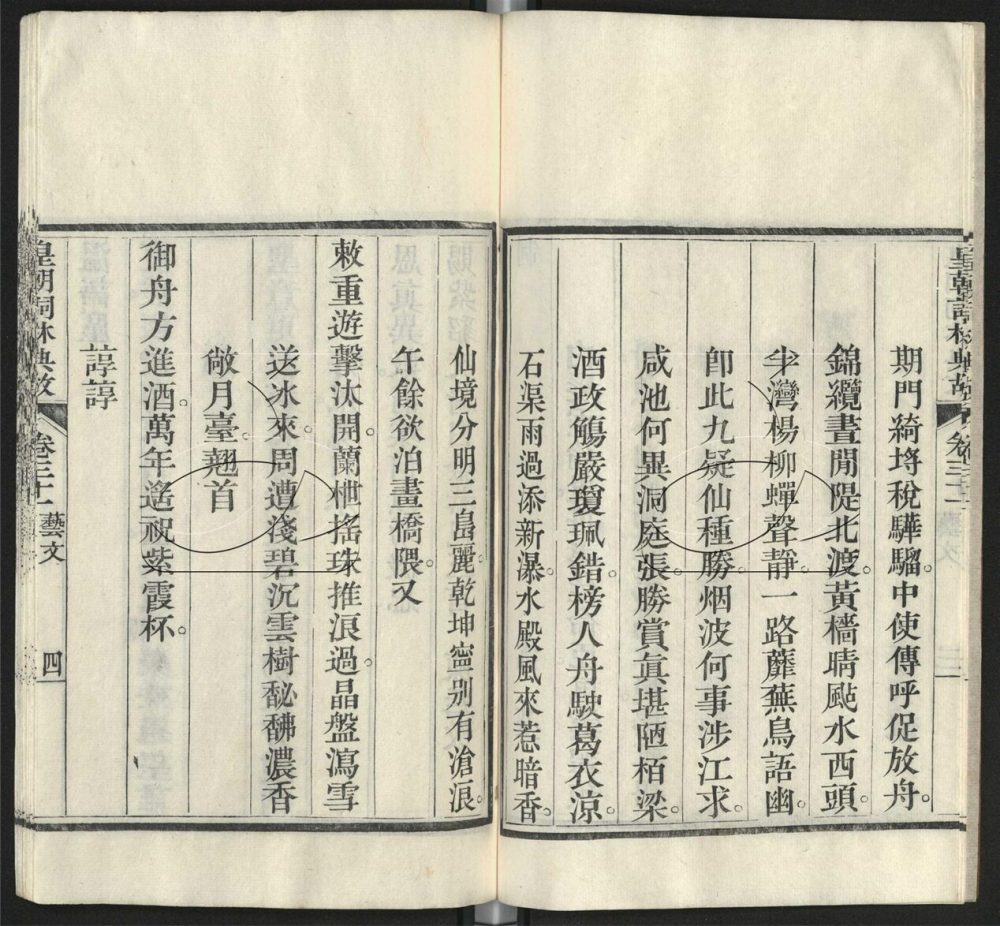 皇朝詞林典故 卷三十一 藝文 三
期門綺塆稅驊騮。中使傳呼促放舟。
錦纜晝閒隄北渡。黃檣晴颭水西頭。
半灣楊柳蟬聲靜。一路蘼蕪鳥語幽。
卽此九疑仙種勝。烟波何事涉江求。
咸池何異洞庭張。勝賞眞堪陋栢梁。
酒政觴嚴瓊珮錯。榜人舟駛葛衣涼。
石渠雨過添新瀑。水殿風來惹暗香。
仙境分明三島麗。乾坤寧别有滄浪。
午餘欲泊畫橋隈。又
敕重遊擊汰開。蘭枻搖珠推浪過。晶盤瀉雪
送冰來。周遭淺碧沉雲樹。馝馞濃香
敞月臺。翹首
御舟方進酒。萬年遙祝紫霞杯。
諄諄
皇朝詞林典故 卷三十一 藝文 四